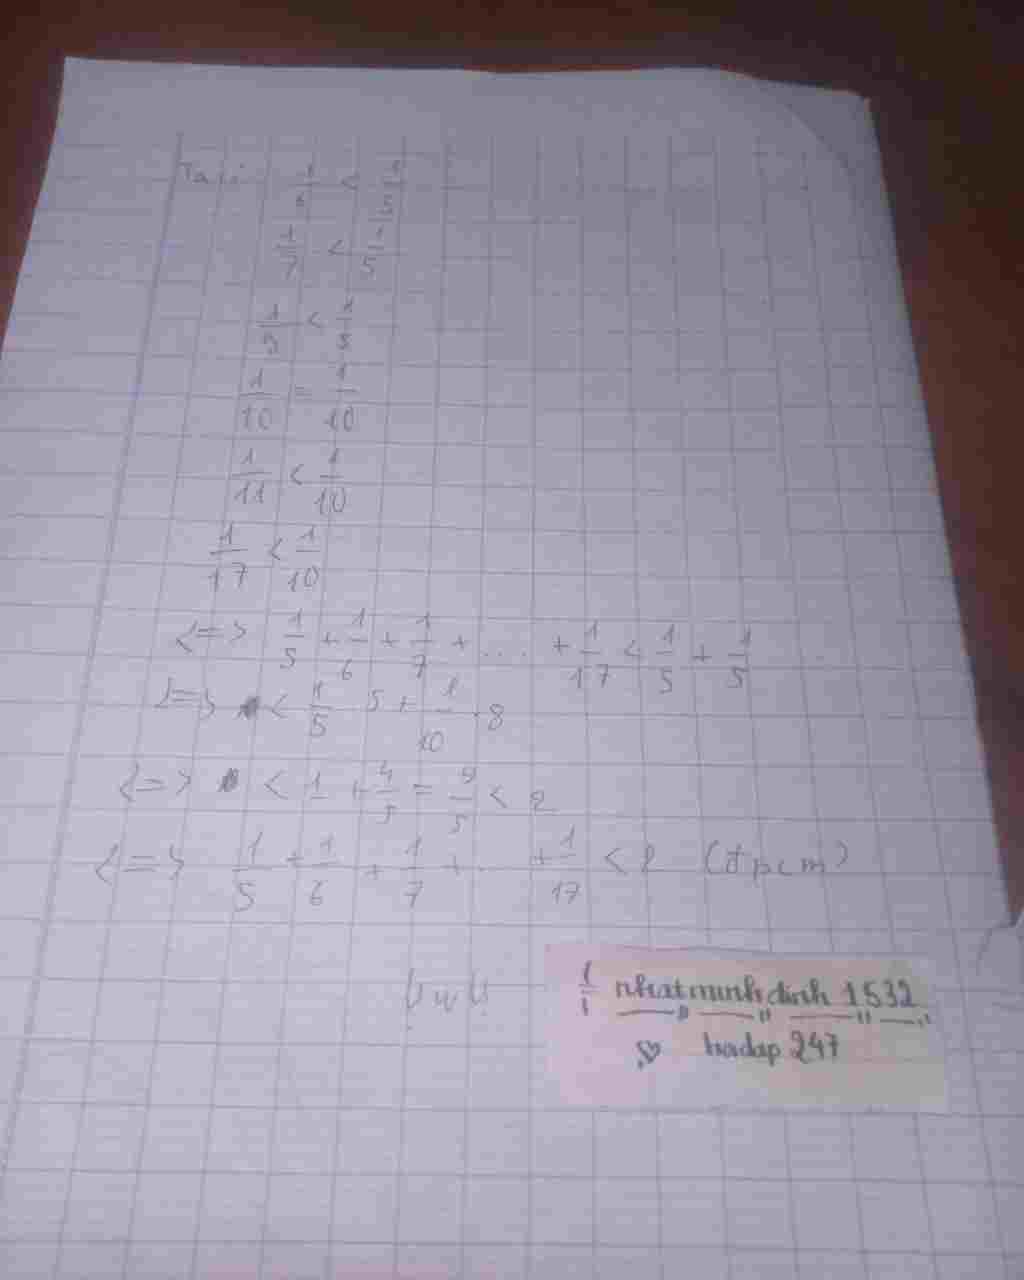 Ta có: 1/6 < 1/5
1/7 < 1/5
1/9 < 1/5
1/10 = 1/10
1/11 < 1/10
1/17 < 1/10
<=> 1/5 + 1/6 + 1/7 + .... + 1/17 < 1/5 + 1/5
<=> < 1/5 . 5 + 1/10 . 8
<=> < 1 + 4/5 = 9/5 < 2
<=> 1/5 + 1/6 + 1/7 + ... + 1/17 < 2 (đpcm)
UwU
nhatminhdinh 1532
hoidap 247